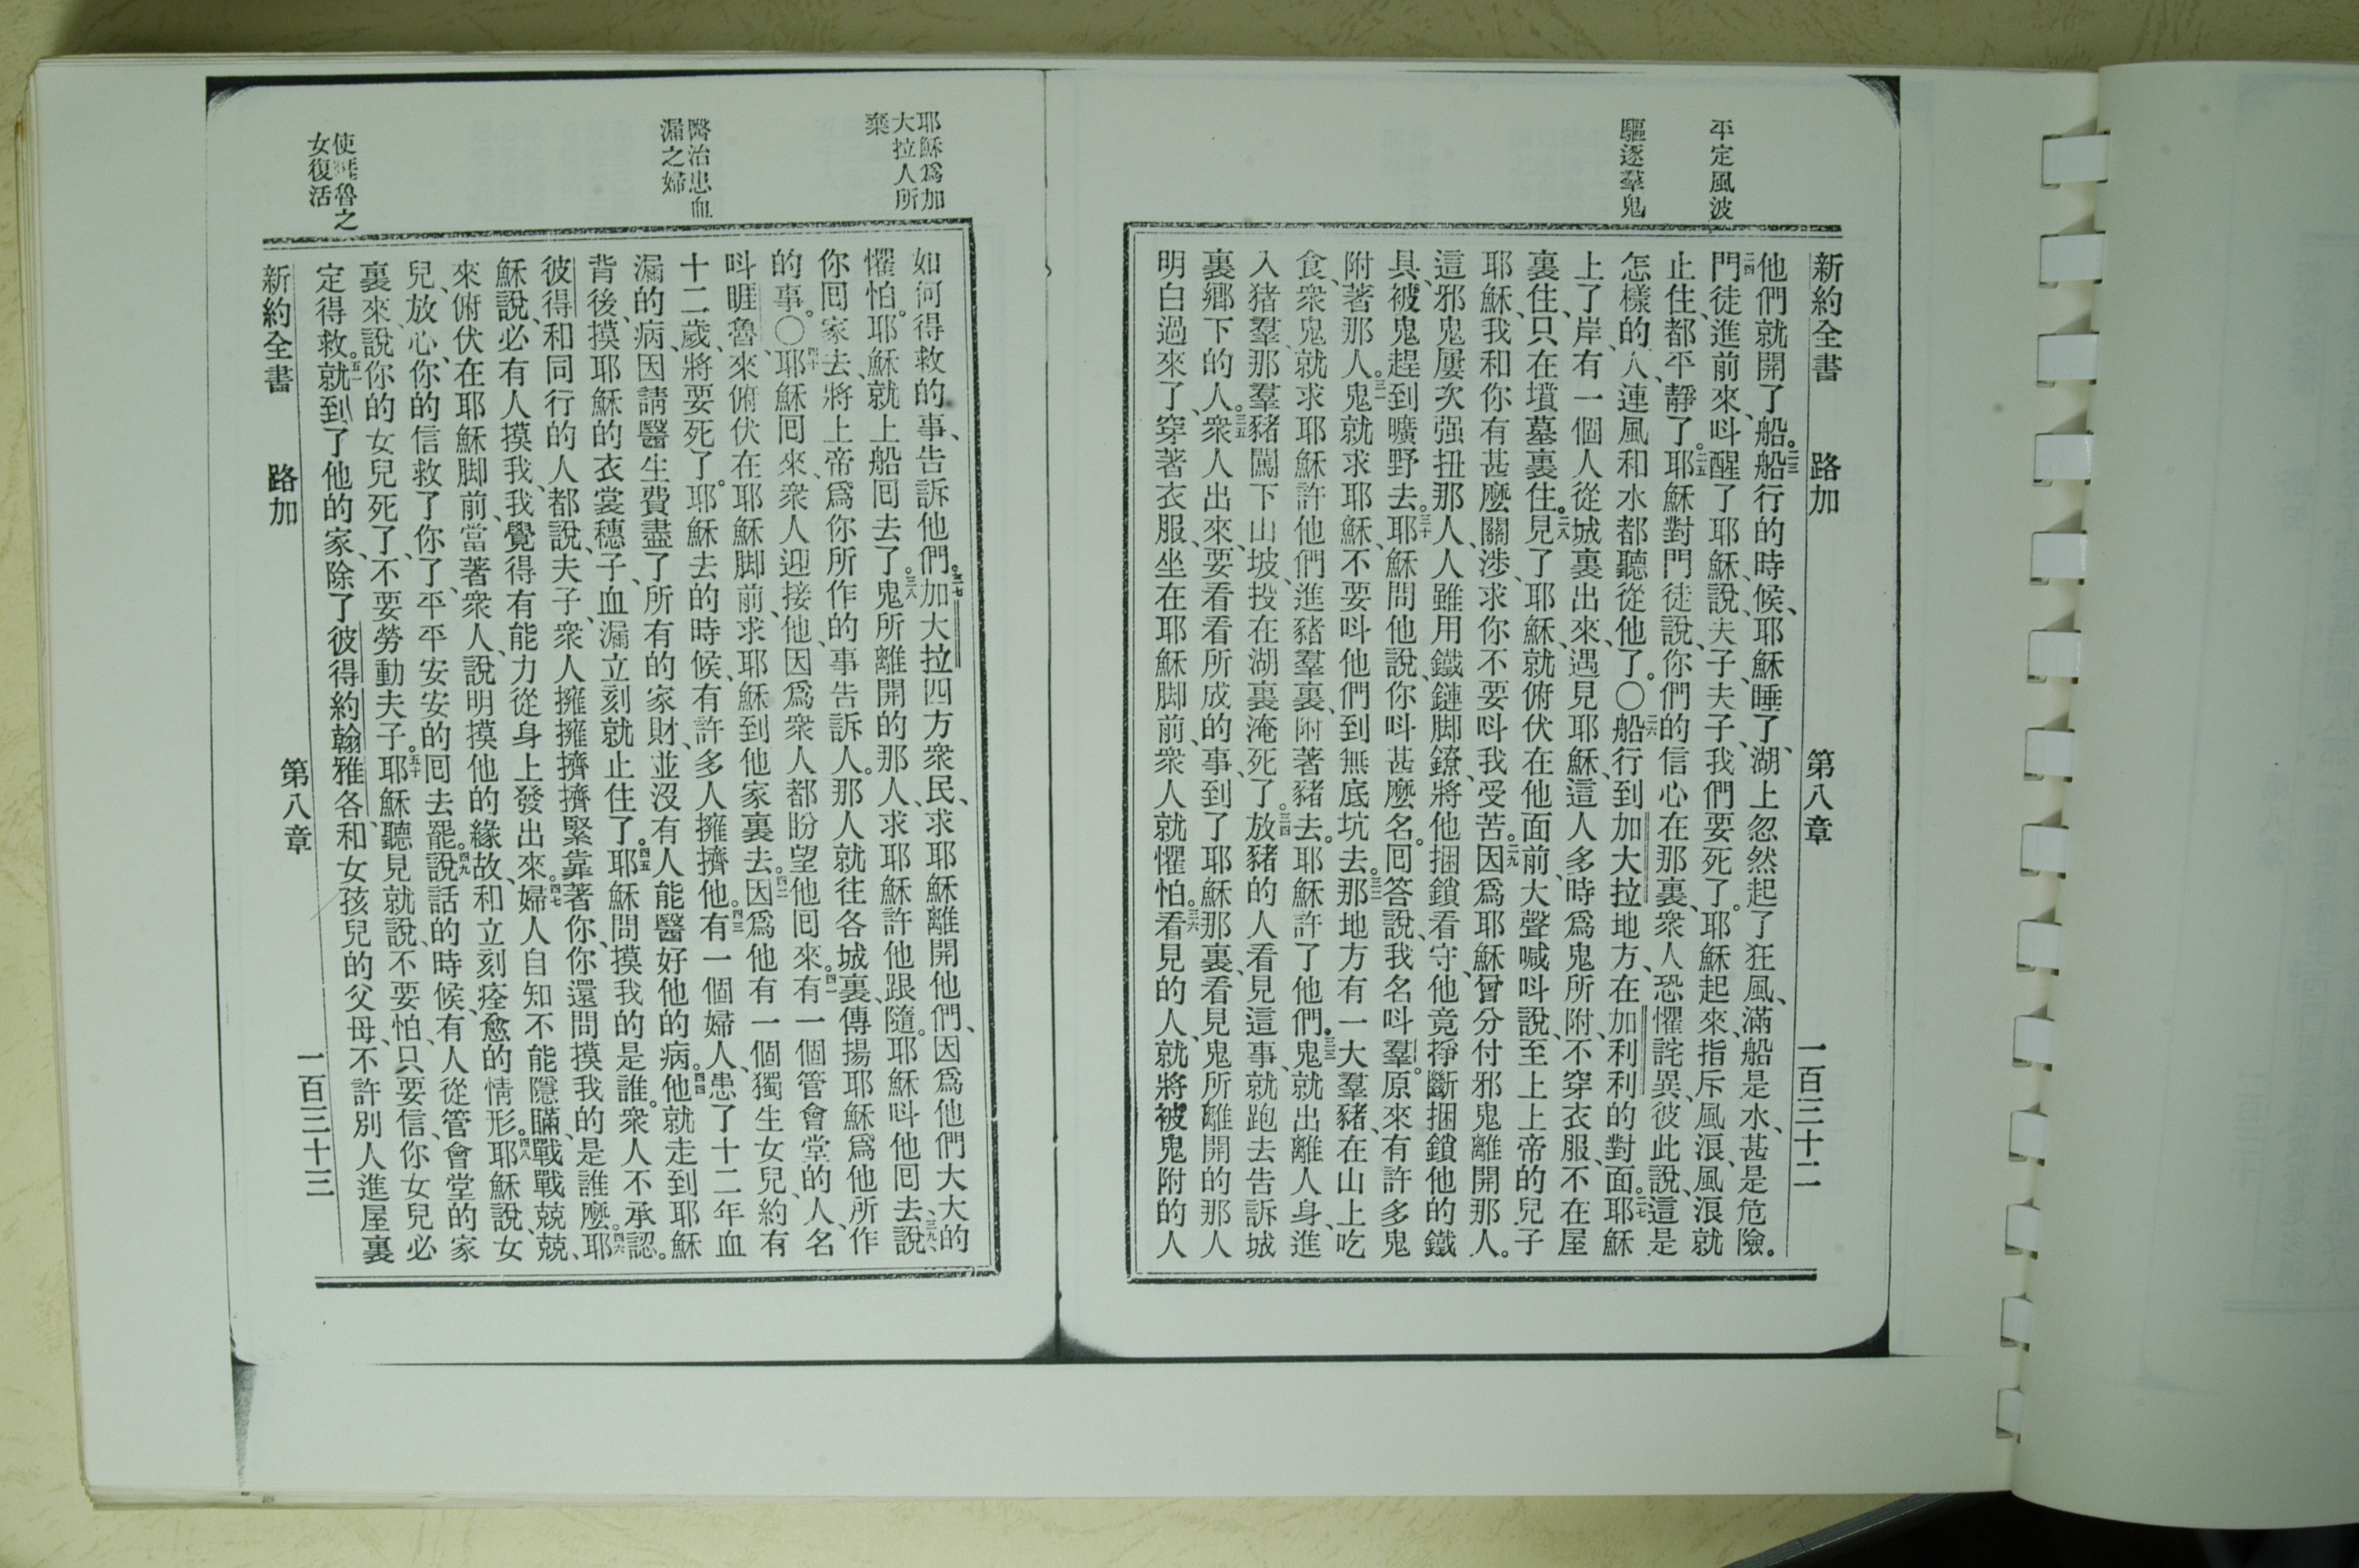 平定風波
驅逐羣鬼
新約全書 路加 第八章 一百三十二
他們就開了船。二三船行的時候、耶穌睡了、湖上忽然起了狂風、滿船是水、甚是危險。
二四門徒進前來、呌醒了耶穌、說、夫子、夫子、我們要死了。耶穌起來、指斥風浪、風浪就
止住、都平靜了。二五耶穌對門徒說、你們的信心在那裏、衆人恐懼詫異、彼此說、這是
怎樣的人、連風和水都聽從他了。〇二六船行到加大拉地方、在加利利的對面。二七耶穌
上了岸、有一個人從城裏出來、遇見耶穌、這人多時爲鬼所附、不穿衣服、不在屋
裏住、只在墳墓裏住。二八見了耶穌、就俯伏在他面前、大聲喊呌說、至上上帝的兒子
耶穌、我和你有甚麼關涉、求你不要呌我受苦。二九因爲耶穌曾分付邪鬼離開那人。
這邪鬼屢次强扭那人、人雖用鐵鏈脚鐐、將他捆鎖看守、他竟掙斷捆鎖他的鐵
具、被鬼趕到曠野去。三十耶穌問他說、你呌甚麼名。囘答說、我名呌羣。原來有許多鬼
附著那人。三一鬼就求耶穌、不要呌他們到無底坑去。三二那地方有一大羣豬、在山上吃
食、衆鬼就求耶穌許他們進豬羣裏、附著豬去。耶穌許了他們。三三鬼就出離人身、進
入猪羣、那羣豬闖下山坡、投在湖裏淹死了。三四放豬的人看見這事、就跑去告訴城
裏鄉下的人。三五衆人出來、要看看所成的事、到了耶穌那裏、看見鬼所離開的那人
明白過來了、穿著衣服、坐在耶穌脚前、衆人就懼怕。三六看見的人、就將被鬼附的人
耶穌爲加
大拉人所
棄
醫治患血
漏之婦
使睚魯之
女復活
如何得救的事、告訴他們。三七加大拉四方衆民、求耶穌離開他們、因爲他們大大的
懼怕。耶穌就上船囘去了。三八鬼所離開的那人、求耶穌許他跟隨。耶穌呌他囘去、說、三九
你囘家去、將上帝爲你所作的事告訴人。那人就往各城裏、傳揚耶穌爲他所作
的事。〇四十耶穌囘來、衆人迎接他、因爲衆人都盼望他囘來。四一有一個管會堂的人、名
呌睚魯、來俯伏在耶穌脚前、求耶穌到他家裏去。四二因爲他有一個獨生女兒、約有
十二歲、將要死了。耶穌去的時候、有許多人擁擠他。四三有一個婦人、患了十二年血
漏的病、因請醫生費盡了所有的家財、並沒有人能醫好他的病。四四他就走到耶穌
背後、摸耶穌的衣裳穗子、血漏立刻就止住了。四五耶穌問摸我的是誰。衆人不承認。
彼得和同行的人都說、夫子、衆人擁擁擠擠緊靠著你、你還問摸我的是誰麼。四六耶
穌說、必有人摸我、我覺得有能力從身上發出來。四七婦人自知不能隱瞞、戰戰兢兢、
來俯伏在耶穌脚前、當著衆人、說明摸他的緣故、和立刻痊愈的情形。四八耶穌說、女
兒、放心、你的信救了你了、平平安安的囘去罷。四九說話的時候、有人從管會堂的家
裏來、說、你的女兒死了、不要勞動夫子。五十耶穌聽見就說、不要怕、只要信、你女兒必
定得救。五一就到了他的家、除了彼得約翰雅各、和女孩兒的父母、不許別人進屋裏
新約全書 路加 第八章 一百三十三